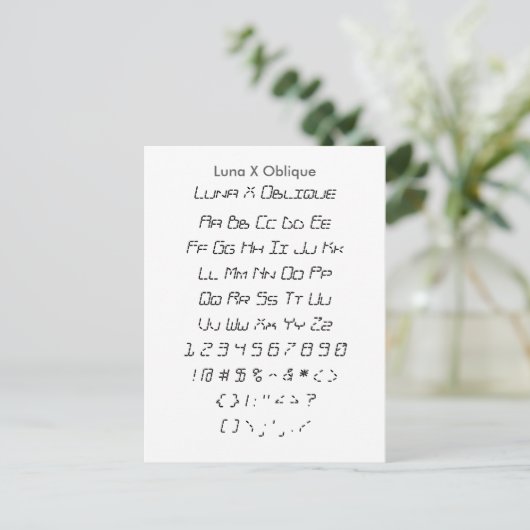 Luna X Oblique
Luna X Oblique
Aa Bb Cc Dd Ee
Ff Gg Hh Ii Jj Kk
Ll Mm Nn Oo Pp
Qq Rr Ss Tt Uu
Vv Ww Xx Yy Zz
1 2 3 4 5 6 7 8 9 0
! @ # $ % ^ & * ( )
{ } | : " < > ?
[ ] \ ; ' , . /